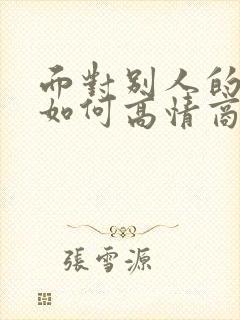 而對別人的
如何高情商
張雪源